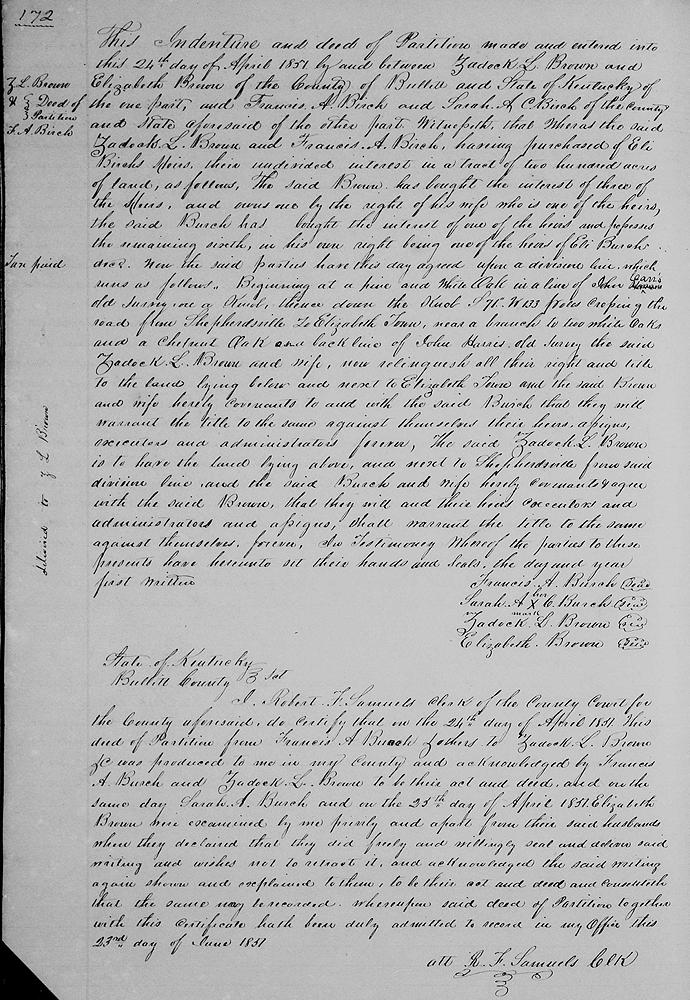 172
This Indenture and deed of Partition made and entered into
this 24th day of April 1851 by and between Zadock L Brown and
Elizabeth Brown of the County of Bullitt and State of Kentucky of
the one part, and Francis. A. Birch and Sarah. A C. Birch of the County
and State aforesaid of the other part. Witnesseth, that Wheras the said
Zadock. L. Brown and Francis. A. Birch, having purchased of Eli
Birchs Heirs, their undivided interest in a tract of two hundred acres
of land, as follows, The said Brown. has bought the interest of three of
the Heirs, and owns one by the right of his wife who is one of the heirs,
the said Burch has bought the interest of one of the heirs and possesses
the remaining sixth, in his own right being one of the heirs of Eli Burchs
decd. Now the said parties have this day agreed upon a division line, which
runs as follows,, Beginning at a pine and White Oak in a line of John Harris
old survey on a Knob, thence down the Knob S 75. W 133 poles croping the
road from Shepherdsville To Elizabeth Town, near a branch to two white Oaks
and a Chetnut Oak on a back line of John Harris. old Survey the said
Zadock. L. Brown and Wife, now relinquesh all their right and title
to the land lying below and next to Elizabeth Town and the said Brown
and wife hereby Covenants to and with the said Burch that they will
warrant the title to the same against themselves their heirs. assigns,
executors and administrators forever, The said Zadock. L. Brown
is to have the land lying above, and next to Shepherdsville from said
division line, and the said Burch and Wife hereby Covenants & agree
with the said Brown, that they will and their heirs executors and
administrators and assigns, shall warrant the title to the same
against themselves. forever, In Testimoney Whereof the parties to these
presents have hereunto set their hands and Seals. the day and year
first written
Francis. A. Burch Seal
her
Sarah. A X C. Burch Seal
mark
Zadock. L. Brown Seal
Elizabeth. Brown Seal
State of Kentucky
Bullitt County } Sct
I. Robert. F. Samuels Clerk of the County Court for
the County aforesaid, do Certify that on the 24th day of April 1851. This
deed of Partition from Francis. A Burch & others to Zadock. L. Brown
&C was produced to me in my County and acknowledged by Francis
A. Burch and Zadock. L. Brown to be their act and deed, and on the
same day Sarah. A. Burch and on the 25th day of April 1851. Elizabeth
Brown were examined by me privily and apart from their said husbands
when they declared that they did freely and willingly seal and deliver said
writing and wishes not to retract it, and acknowledged the said writing
again shown and explained to them, to be their act and deed and Consenteth
that the same may be recorded. Whereupon said deed of Partition together
with this Certificate hath been duly admitted to record in my Office this
23rd day of June 1851
att R. F. Samuels Clk
Z L. Brown
& } Deed of
Partition
F. A. Birch
Tax paid
delivered to Z L Brown